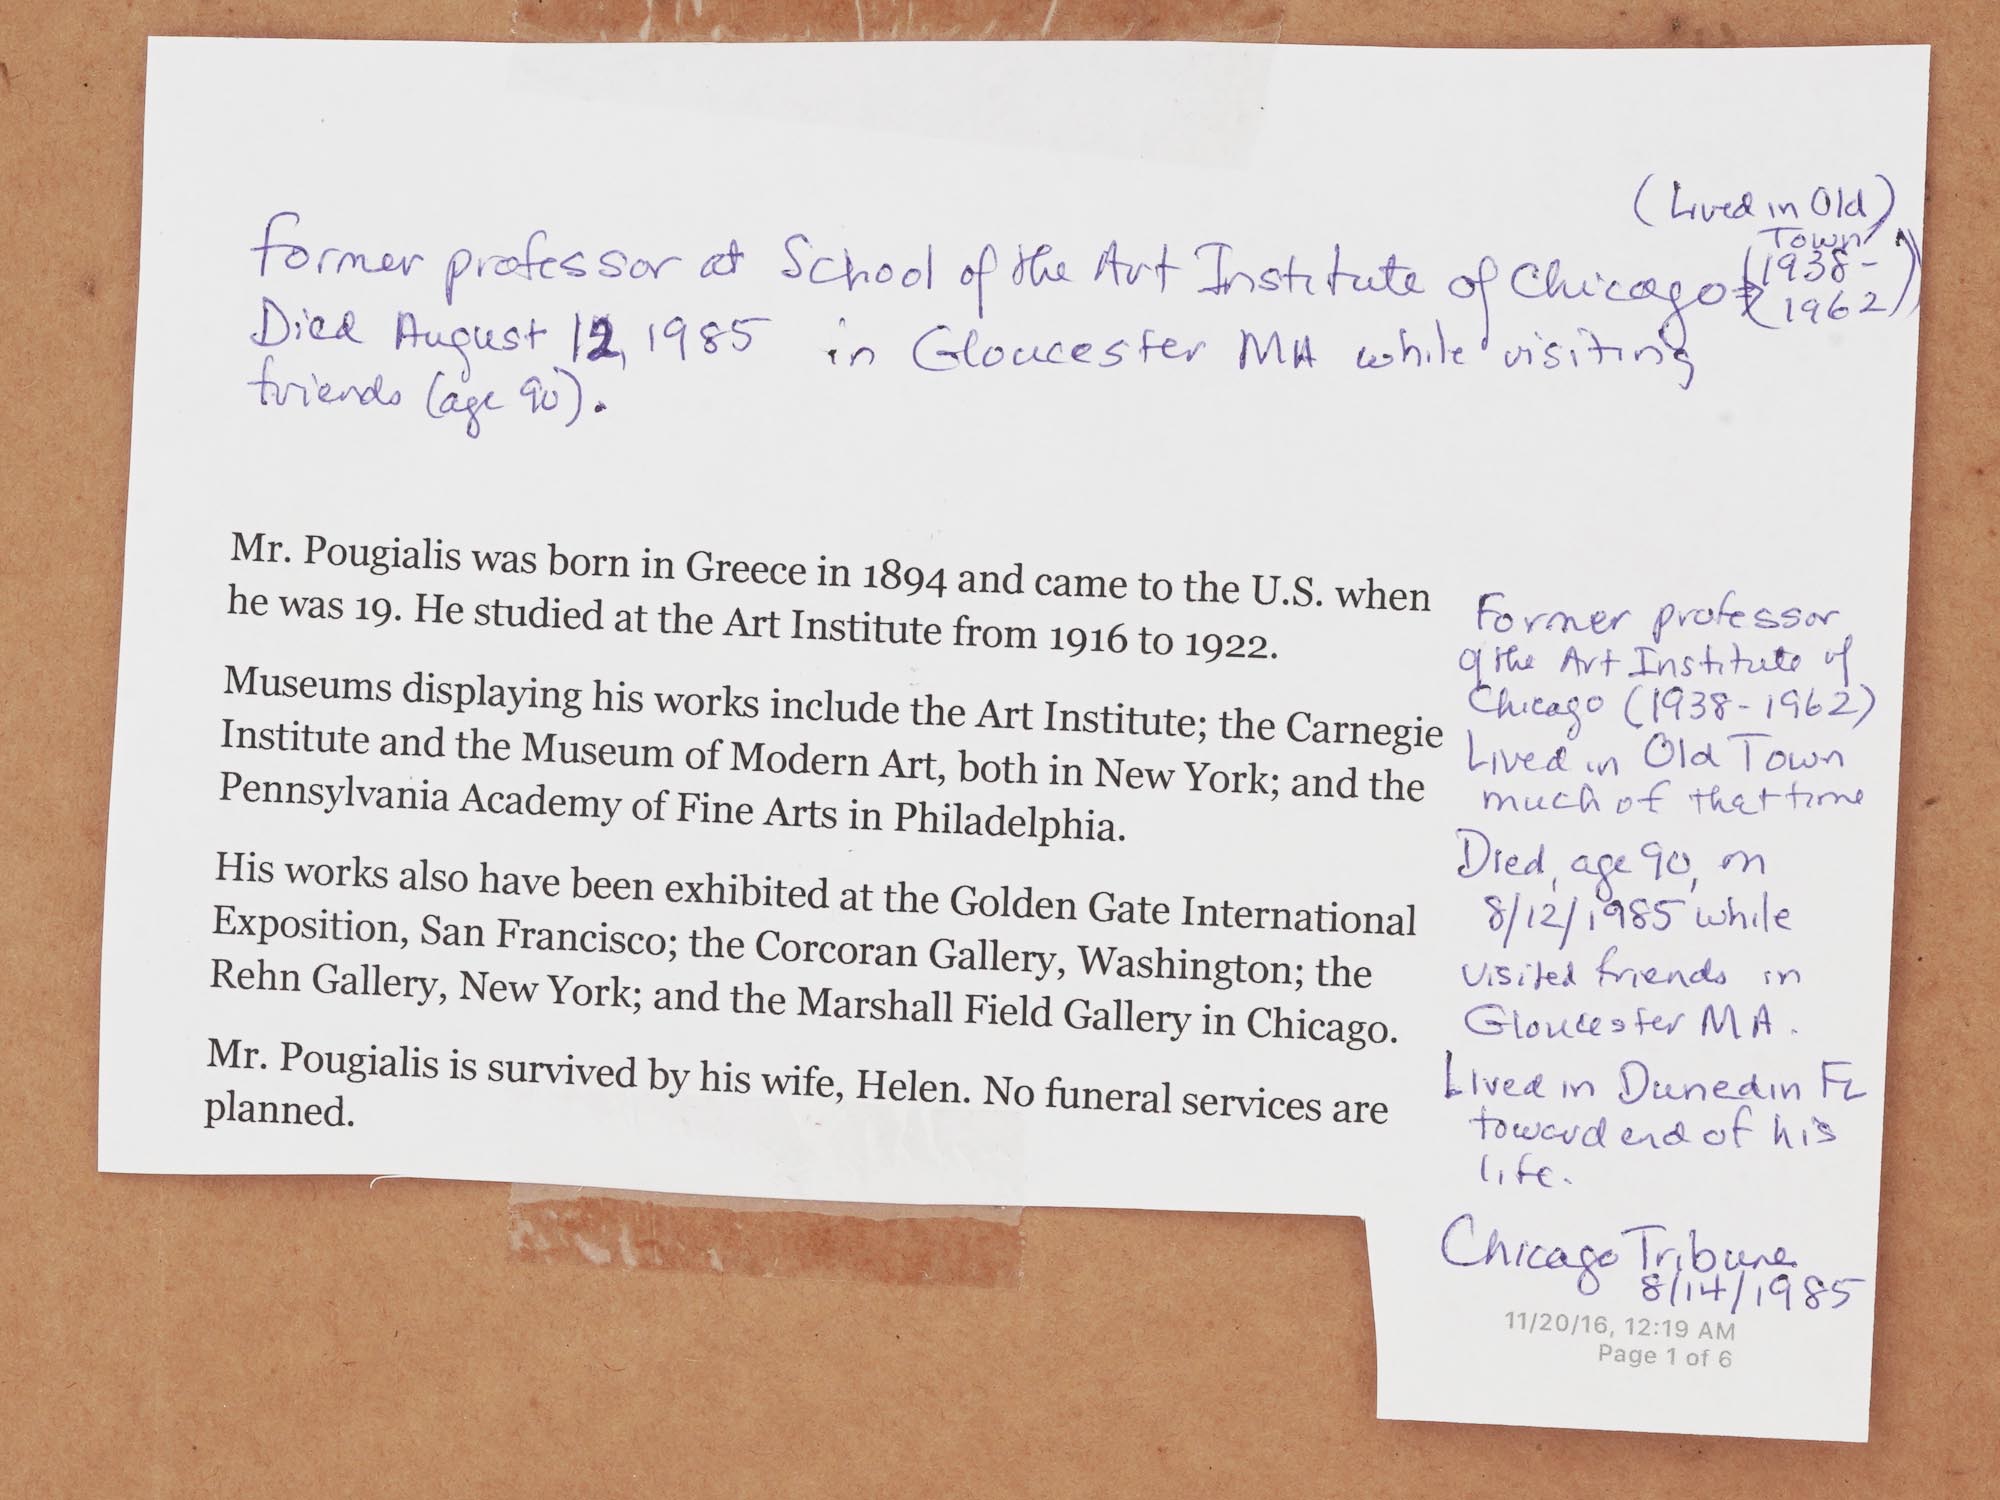 (Lived in Old)
Town
Former professor at School of the Art Institute of Chicago (1938-
1962)
Died August 12, 1985 in Gloucester MA while visiting
friends (age 90).
Mr. Pougialis was born in Greece in 1894 and came to the U.S. when
he was 19. He studied at the Art Institute from 1916 to 1922.
Museums displaying his works include the Art Institute; the Carnegie
Institute and the Museum of Modern Art, both in New York; and the
Pennsylvania Academy of Fine Arts in Philadelphia.
His works also have been exhibited at the Golden Gate International
Exposition, San Francisco; the Corcoran Gallery, Washington; the
Rehn Gallery, New York; and the Marshall Field Gallery in Chicago.
Mr. Pougialis is survived by his wife, Helen. No funeral services are
planned.
Former professor
@ the Art Institute of
Chicago (1938-1962)
Lived in Old Town
much of that time
Died, age 90, on
8/12/1985 while
visited friends in
Gloucester MA.
Lived in Dunedin FL
toward end of his
life.
Chicago Tribune
8/14/1985
11/20/16, 12:19 AM
Page 1 of 6